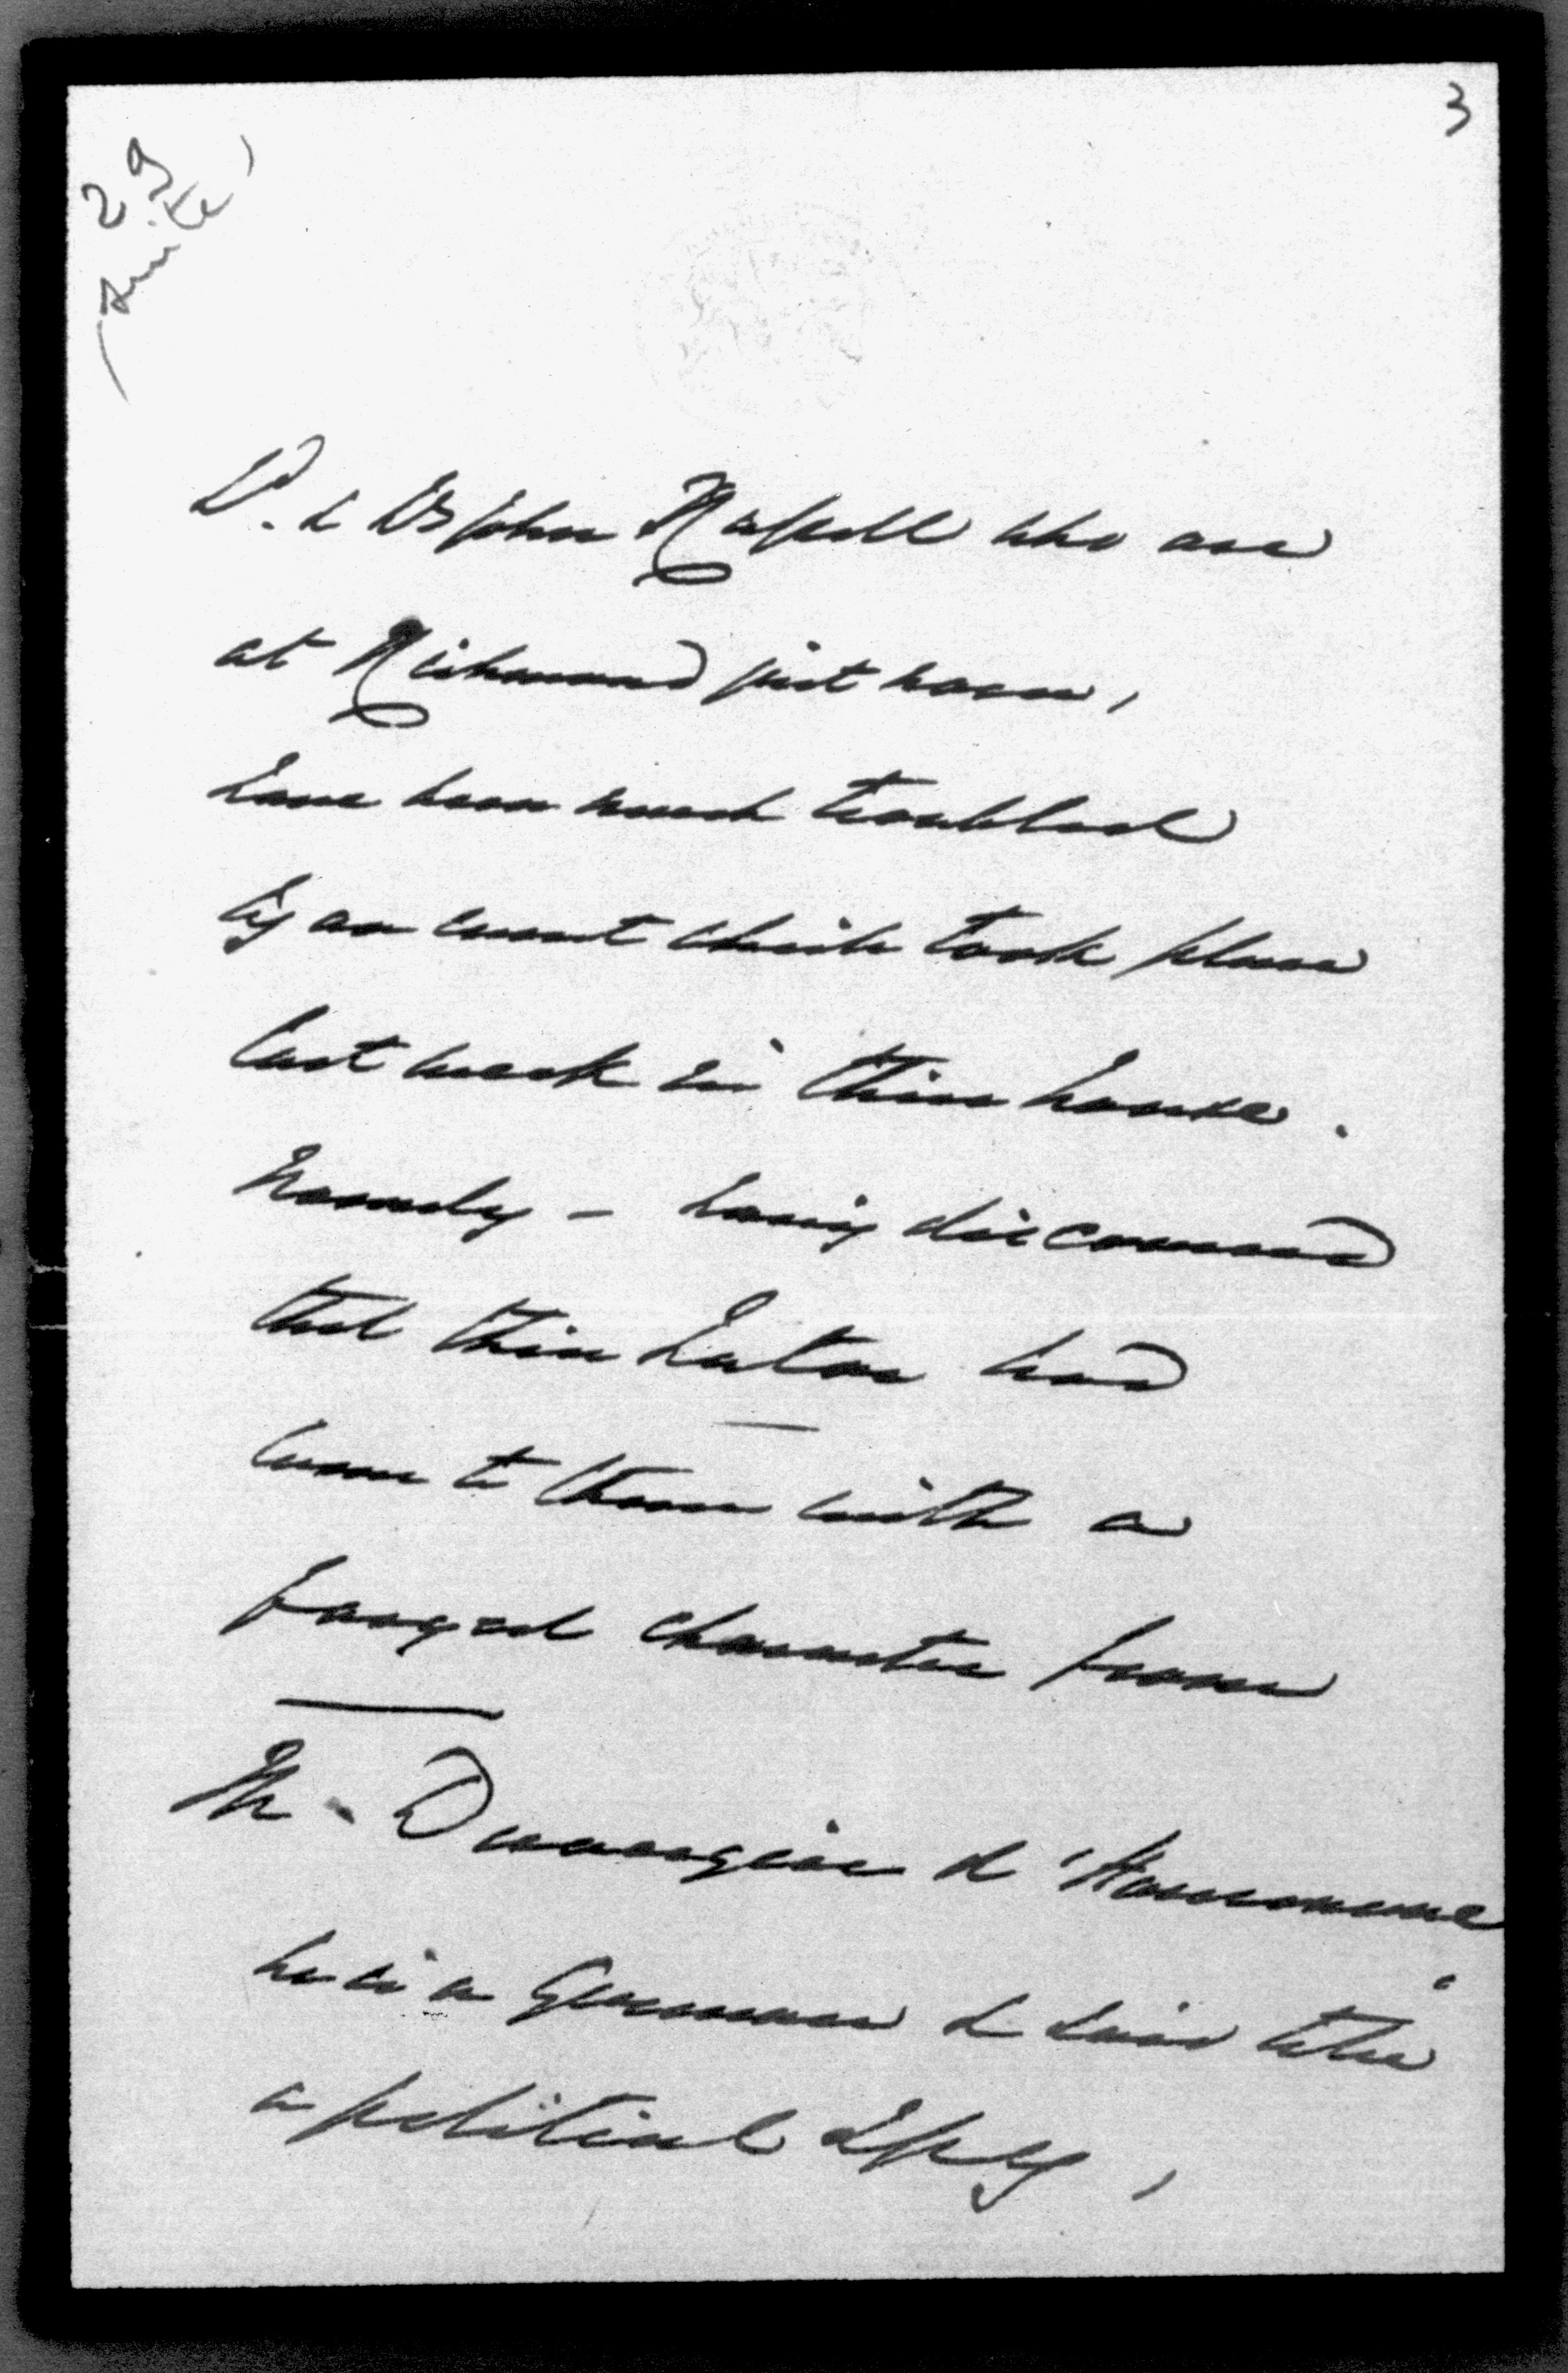 3
29
(suite)
Ld. & Ly John Russell who are
at Richmond just now,
have been much troubled
by an event which took place
last week in their house.
Namely - having discovered
that their Tutor had
come to them with a
forged character from
Mr. Duvergier d'Hauranne
he is a German & said to be
a political spy,